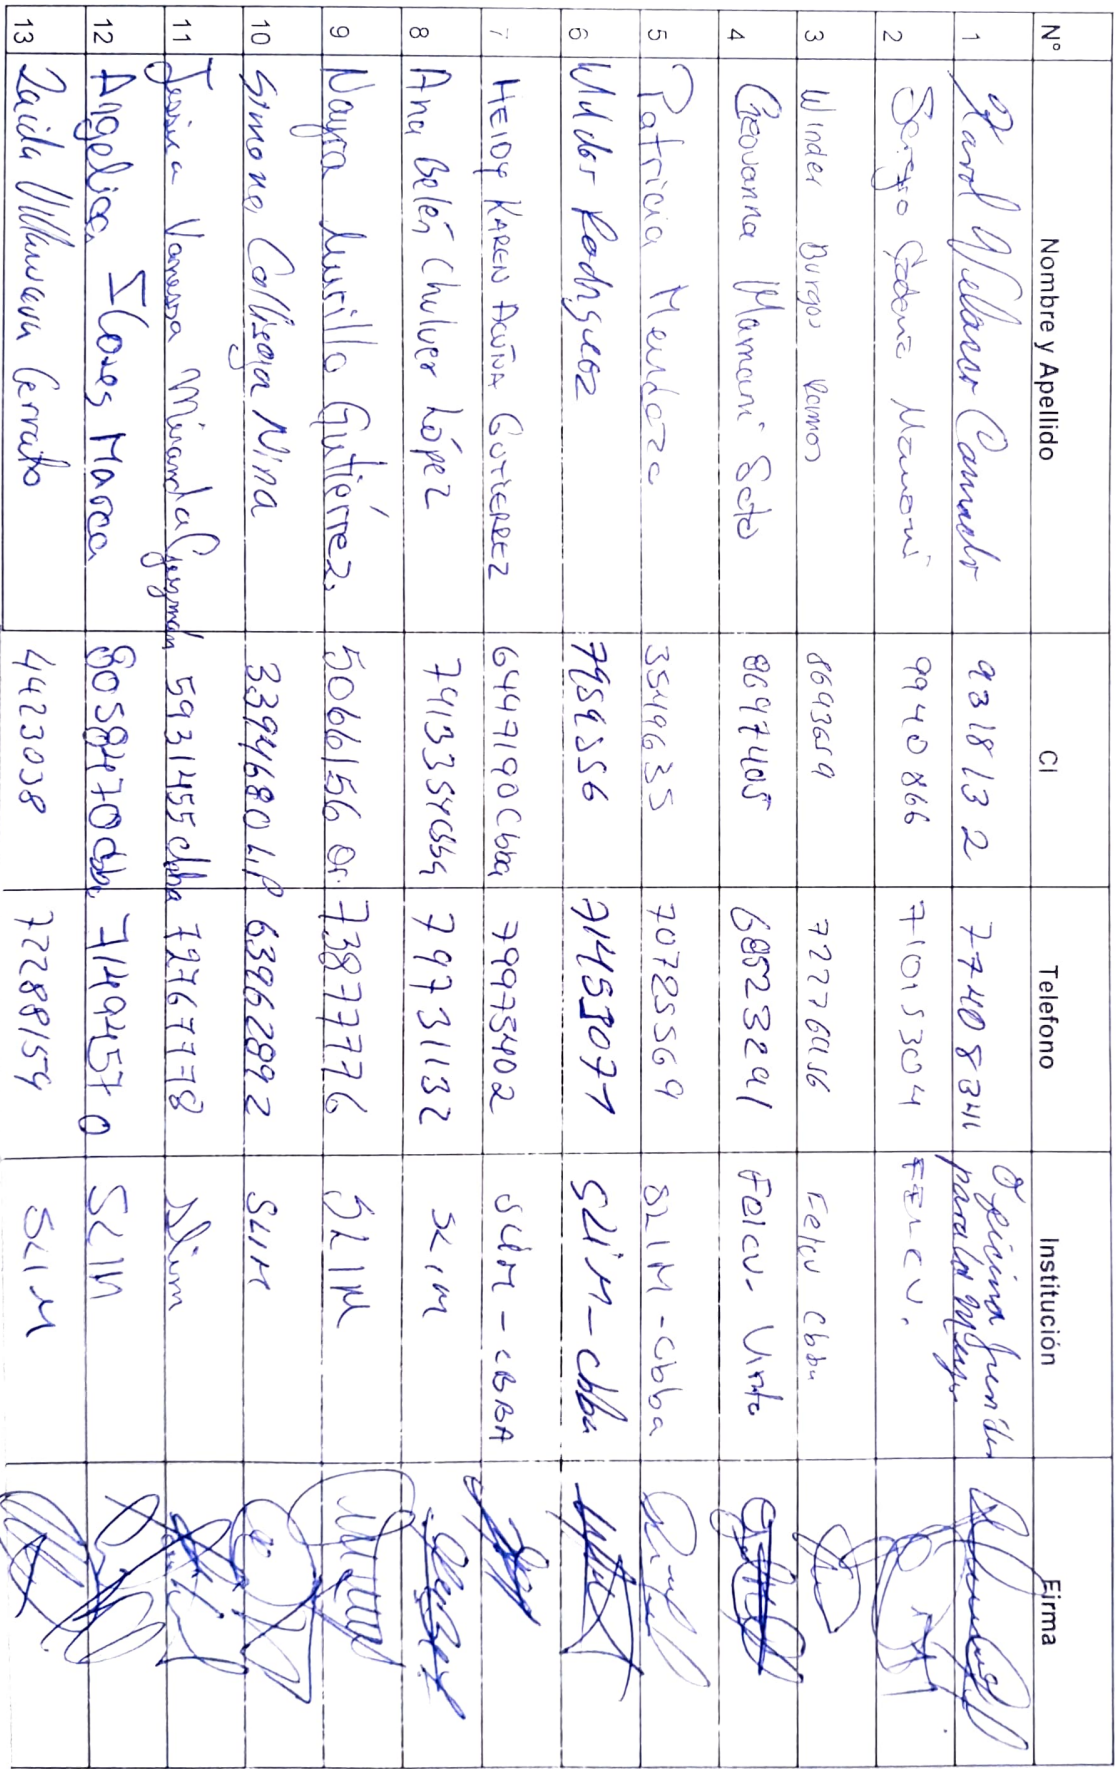 N° Nombre y Apellido CI Telefono Institución Firma
1 Karol Velasco Camacho 9318132 77408341 Oficina Jurídica para la Mujer
2 Sergio Mamani 9940866 71015304 FELCV.
3 Winder Burgos Ramos 8693659 Felcv Cbba
4 Geovanna Mamani Soto 8697405 68523291 Felcv - Vinto
5 Patricia Mendoza 3549635 70725569 SLIM - Cbba
6 Wilder Rodriguez 7959556 71453071 SLIM - Cbba
7 HEIDY KAREN ACUÑA GUTIERREZ 6447190 Cbba 79973402 SLIM - CBBA
8 Ana Belén Chulver López 7413354 Cbba 79731132 SLIM
9 Nayra Murillo Gutiérrez. 5066156 Or. 73877776 SLIM
10 Simona Collisaya Nina 3394680 L.P 63962892 SLIM
11 Jessica Vanessa Miranda Guzmán 5931455 cbba 72767778 Slim
12 Angelica Flores Marca 8058470 cbba 71494570 SLIM
13 Zaida Villanueva Cerrato 4423038 72288159 SLIM